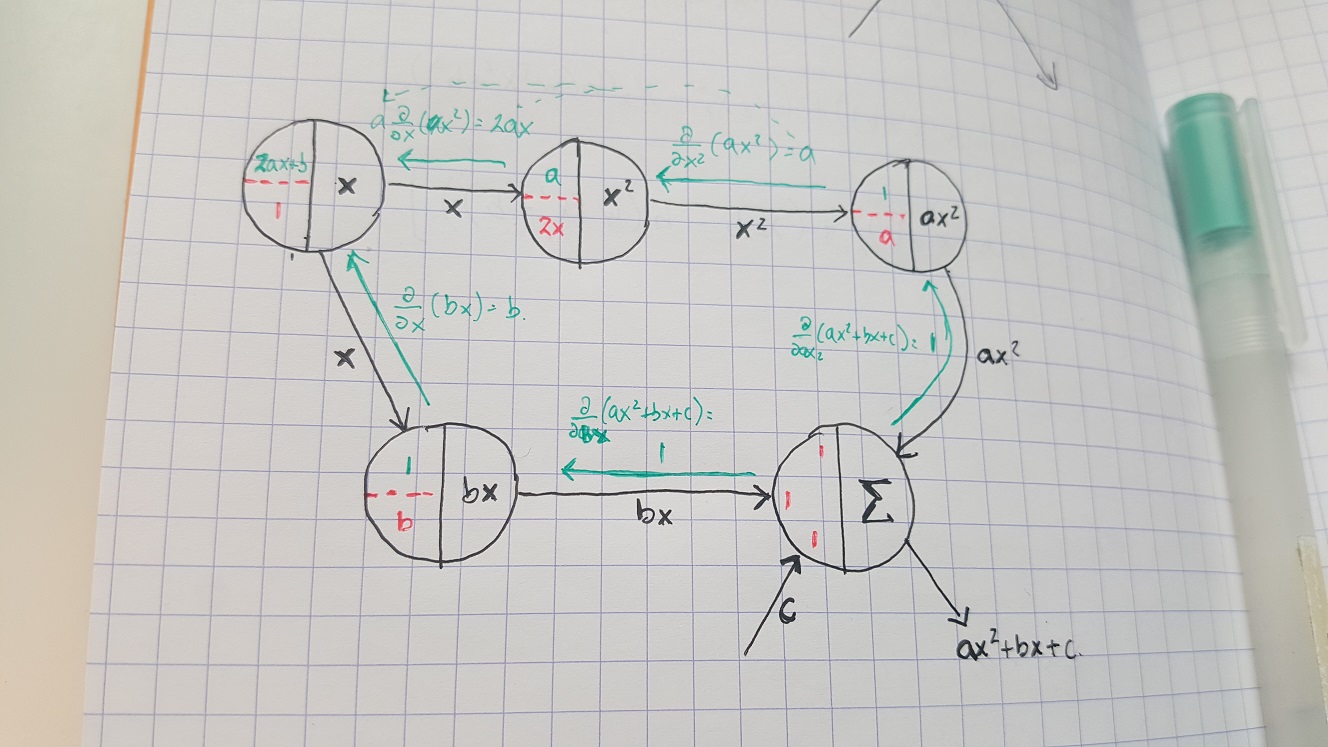 a ∂/∂x (ax²) = 2ax
∂/∂x² (ax²) = a
2ax+b
1
x
x
a
2x
x²
x²
1
a
ax²
∂/∂x (bx) = b.
x
∂/∂ax² (ax²+bx+c) = 1
ax²
∂/∂bx (ax²+bx+c) =
1
1
b
bx
bx
1
1
1
Σ
c
ax²+bx+c.